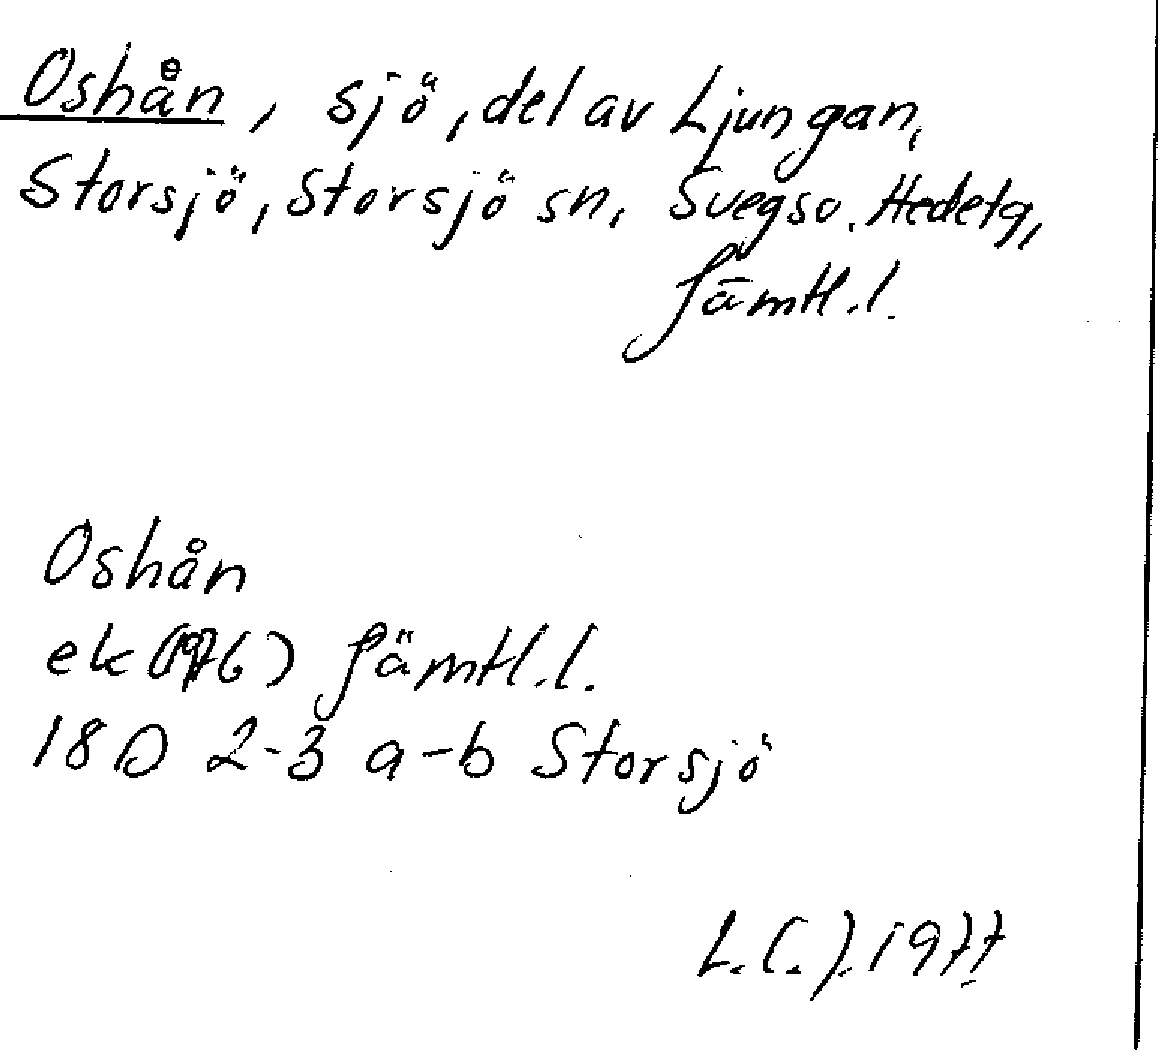 Oshån, sjö, del av Ljungan,
Storsjö, Storsjö sn, Svegs o. Hede tg,
Jämtl. l.
Oshån
ek (1976) Jämtl. l.
18D 2-3 a-b Storsjö
L.C.J. 1977